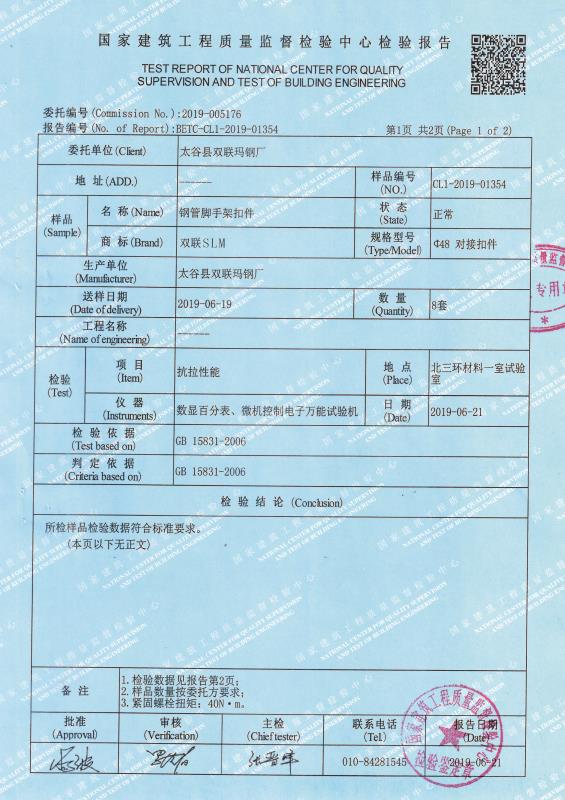 国家建筑工程质量监督检验中心检验报告
TEST REPORT OF NATIONAL CENTER FOR QUALITY
SUPERVISION AND TEST OF BUILDING ENGINEERING
委托编号(Commission No.):2019-005176
报告编号(No. of Report):BETC-CL1-2019-01354
第1页 共2页(Page 1 of 2)
委托单位(Client) 太谷县双联玛钢厂
地 址(ADD.) ------ 样品编号 (NO.) CL1-2019-01354
样品 (Sample) 名 称(Name) 钢管脚手架扣件 状 态 (State) 正常
商 标(Brand) 双联SLM 规格型号 (Type/Model) Φ48 对接扣件
生产单位 (Manufacturer) 太谷县双联玛钢厂
送样日期 (Date of delivery) 2019-06-19 数 量 (Quantity) 8套
工程名称 (Name of engineering) ------
检验 (Test) 项 目 (Item) 抗拉性能 地 点 (Place) 北三环材料一室试验室
仪 器 (Instruments) 数显百分表、微机控制电子万能试验机 日 期 (Date) 2019-06-21
检 验 依 据 (Test based on) GB 15831-2006
判 定 依 据 (Criteria based on) GB 15831-2006
检 验 结 论 (Conclusion)
所检样品检验数据符合标准要求。
(本页以下无正文)
备 注
1.检验数据见报告第2页；
2.样品数量按委托方要求；
3.紧固螺栓扭矩：40N·m。
批准 (Approval) 审核 (Verification) 主检 (Chief tester) 联系电话 (Tel.) 报告日期 (Date)
010-84281545 2019-06-21
国家建筑工程质量监督检验中心
检验鉴定章
专用章